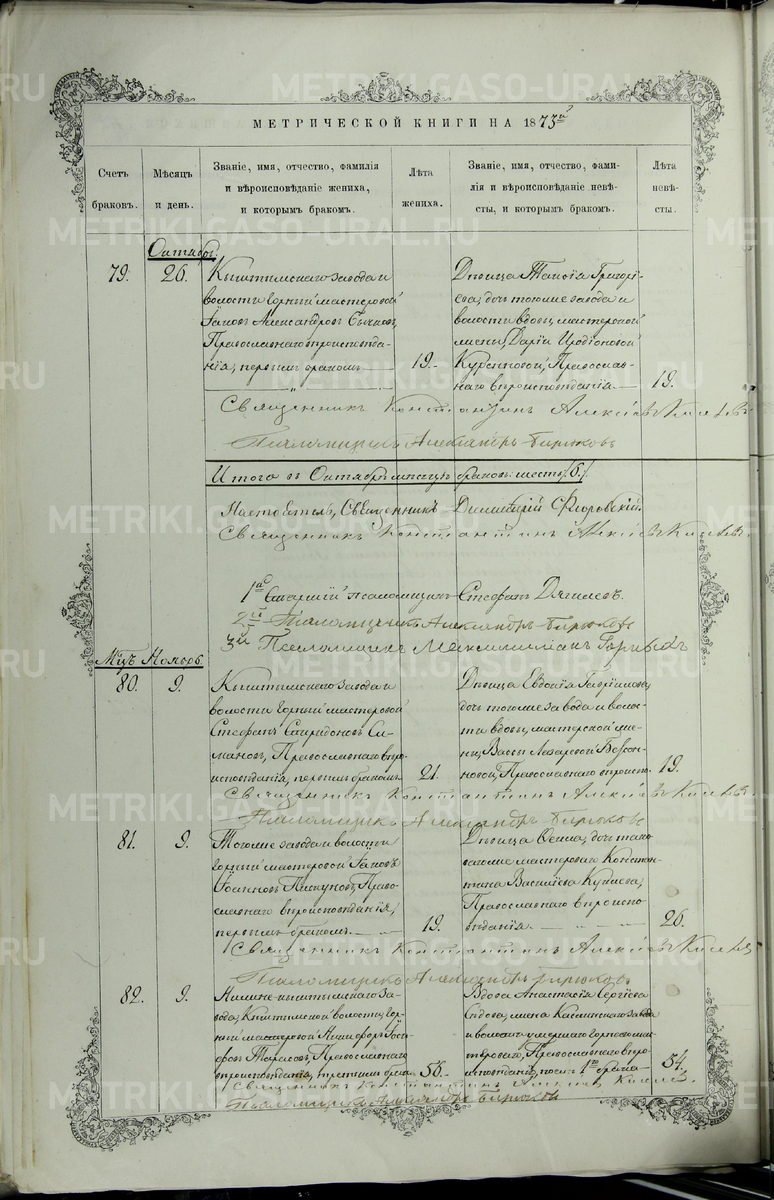 МЕТРИЧЕСКОЙ КНИГИ НА 1873й
Счетъ браковъ.
Мѣсяцъ и день.
Званіе, имя, отчество, фамилія
и вѣроисповѣданіе жениха,
и которымъ бракомъ.
Лѣта
жениха.
Званіе, имя, отчество, фами-
лія и вѣроисповѣданіе невѣ-
сты, и которымъ бракомъ.
Лѣта
невѣ-
сты.
Октябрь
79. 26.
Кыштымскаго завода и
волости горный мастеровой
Іаковъ Александровъ Сычковъ,
Православнаго вѣроисповѣда-
нія, первымъ бракомъ
19.
Дѣвица Таисія Григорі-
ева, дочь тогоже завода и
волости вдовы, мастерской
жены, Даріи Иродіоновой
Куренковой, Православ-
наго вѣроисповѣданія
19.
Священникъ Константинъ Алексіевъ Киселевъ
Псаломщикъ Александръ Бирюковъ
Итого въ Октябрѣ мѣсяцѣ браковъ шесть /6/.
Настоятель, Священникъ Димитрій Флоровскій.
Священникъ Константинъ Алексіевъ Киселевъ.
1й Старшій псаломщикъ Стефанъ Дягилевъ.
2й Псаломщикъ Александръ Бирюковъ
3й Псаломщикъ Максимиліанъ
Мцъ Ноябрь
80. 9.
Кыштымскаго завода и
волости горный мастеровой
Стефанъ Спиридоновъ Си-
мановъ, Православнаго вѣро-
исповѣданія, первымъ бракомъ
21.
Дѣвица Евдокія Гавріилова,
дочь тогоже завода и волос-
ти вдовы, мастерской же-
ны, Вассы Лазаревой
Православнаго вѣроиспо.
19.
Священникъ Константинъ Алексіевъ Киселевъ.
Псаломщикъ Александръ Бирюковъ
81. 9.
Тогоже завода и волости
горный мастеровой Іаковъ
Іоанновъ Пискуновъ, Право-
славнаго вѣроисповѣданія,
первымъ бракомъ
19.
Дѣвица дочь тако-
вагоже мастероваго Констан-
тина Василіева
Православнаго вѣроиспо-
вѣданія.
26.
Священникъ Константинъ Алексіевъ Киселевъ
Псаломщикъ Александръ Бирюковъ
82. 9.
Нижне-кыштымскаго за-
вода, Кыштымской волости, гор-
ный мастеровой Никифоръ Іоси-
фовъ Тарасовъ, Православнаго
вѣроисповѣданія, третьимъ брако.
56.
Вдова Анастасія Сергіева
жена Каслинскаго завода
и волости умершаго горнаго ма-
стероваго, Православнаго вѣро-
исповѣданія, послѣ 1го брака
54.
Священникъ Константинъ Алексіевъ Киселевъ.
Псаломщикъ Александръ Бирюковъ
METRIKI.GASO-URAL.RU